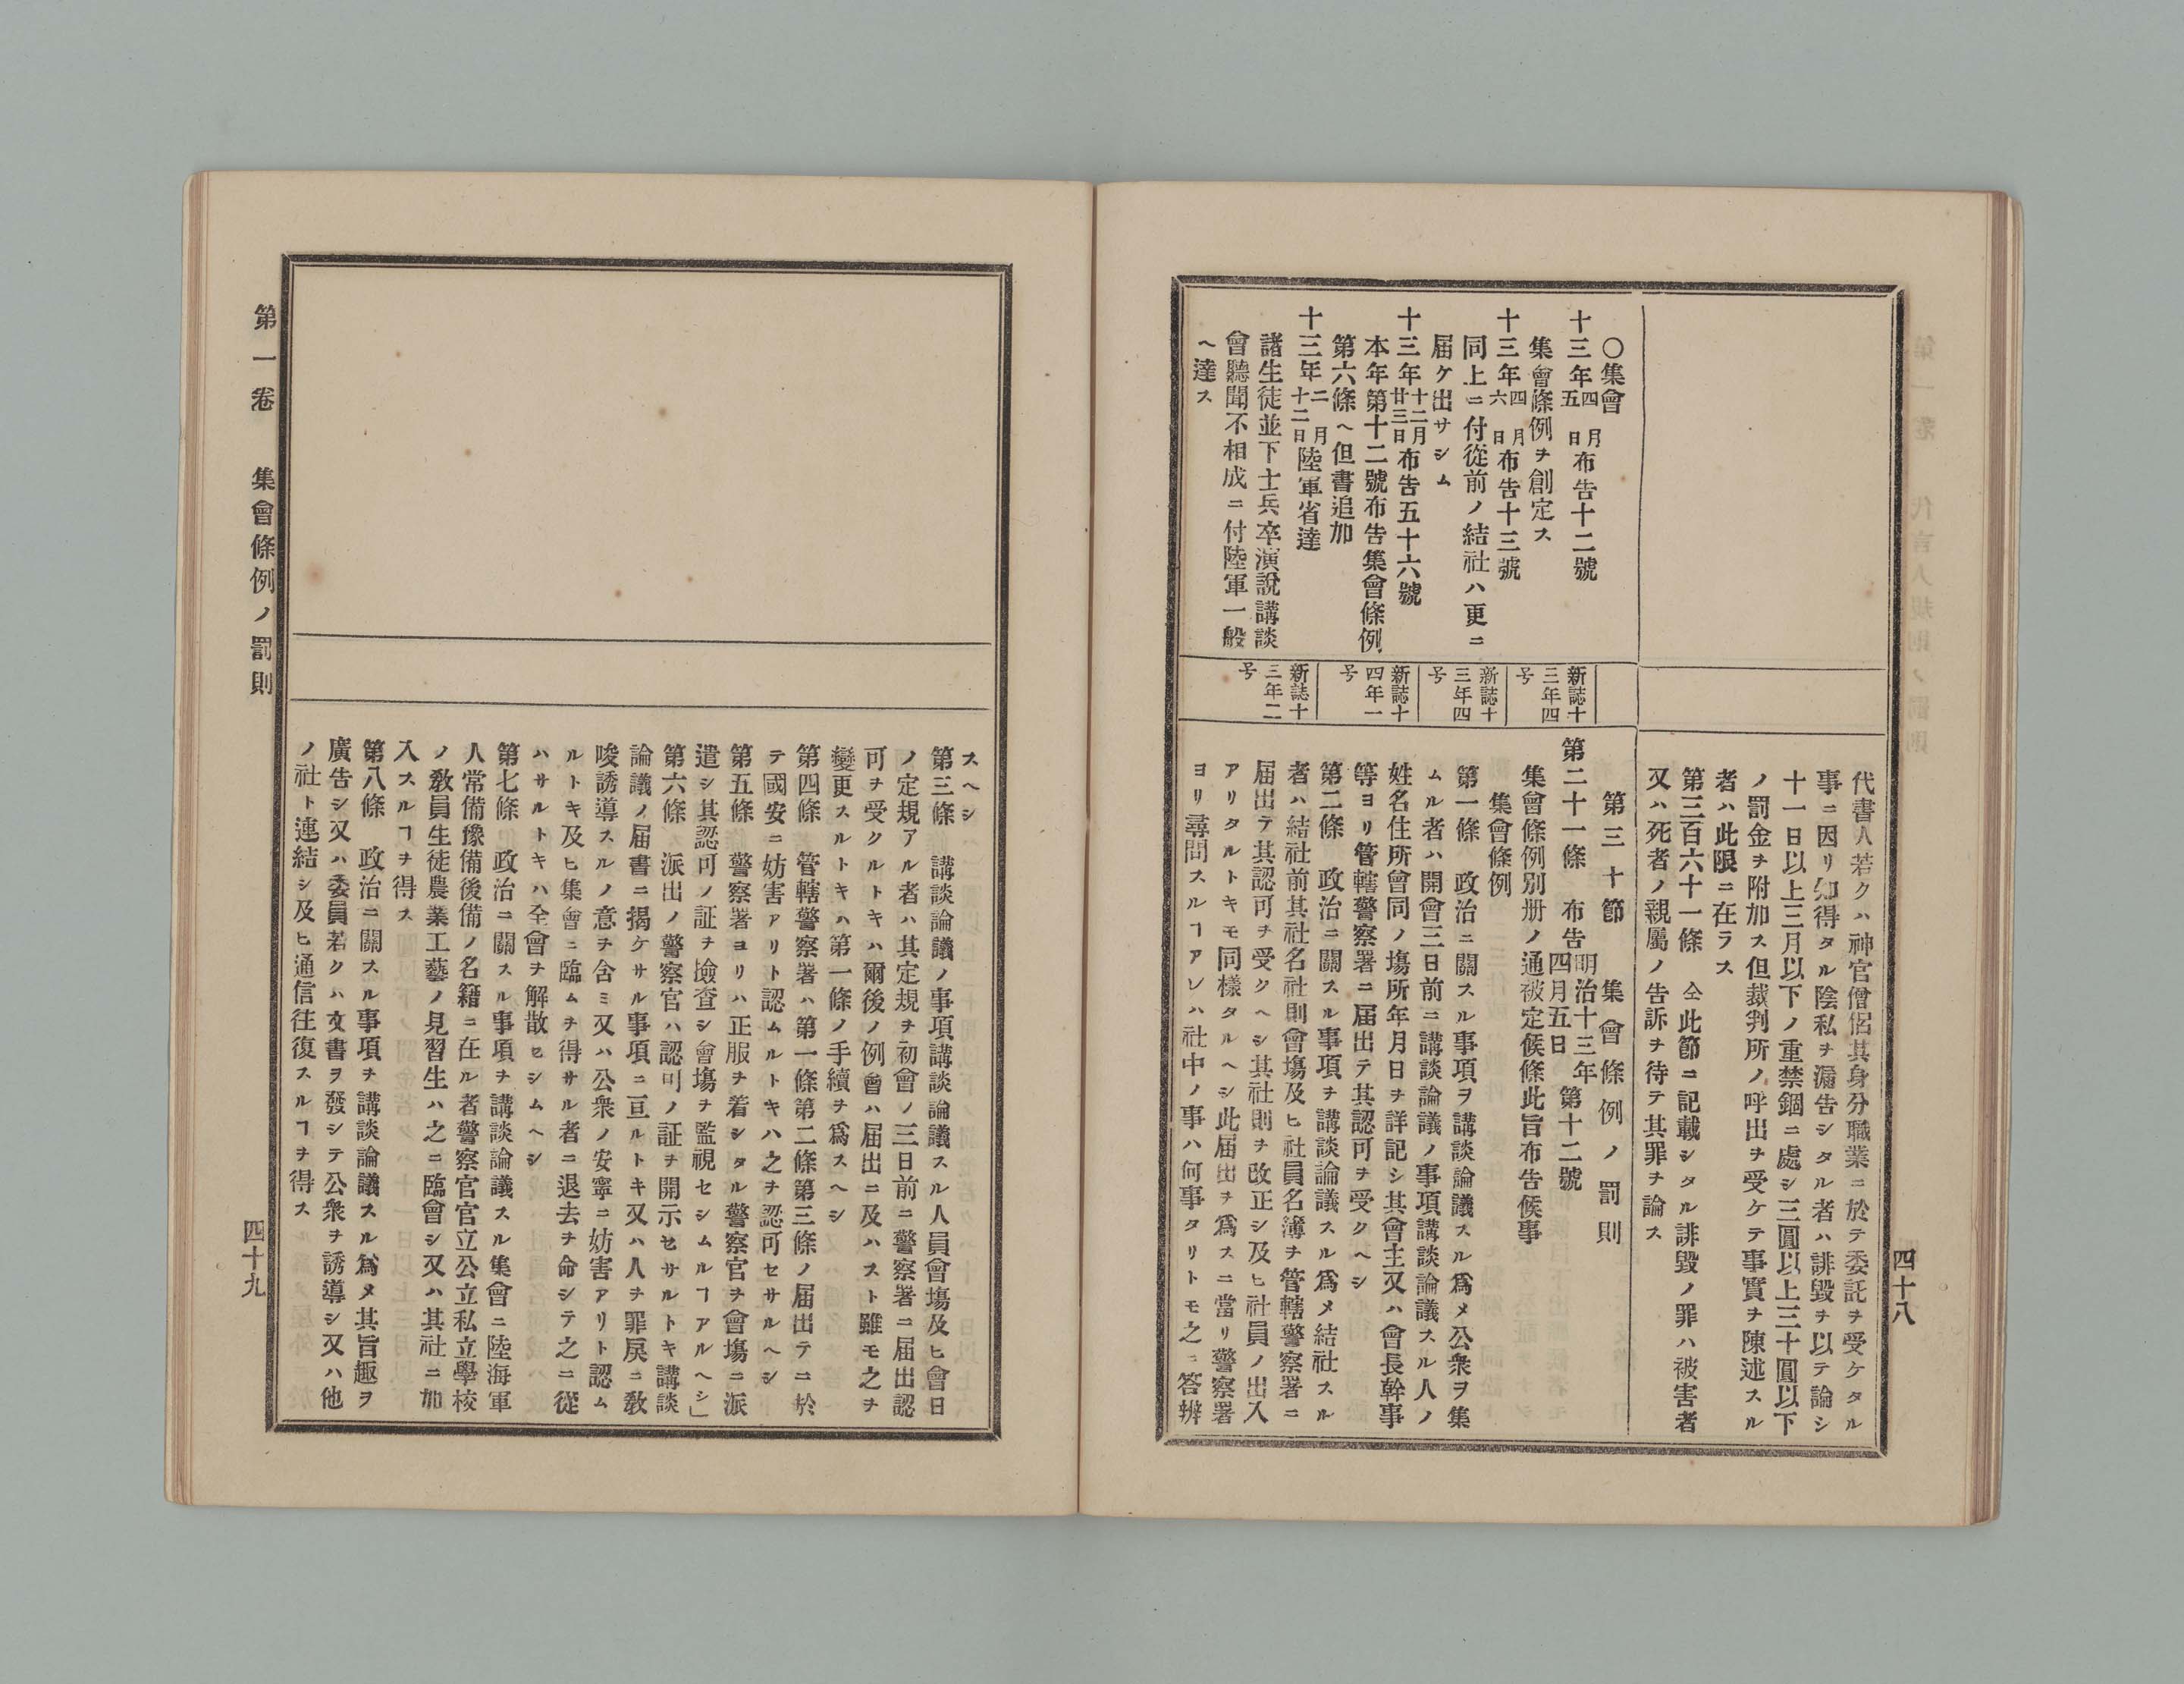 四十八
代書人若クハ神官僧侶其身分職業ニ於テ委託ヲ受ケタル
事ニ因リ知得タル陰私ヲ漏告シタル者ハ誹毀ヲ以テ論シ
十一日以上三月以下ノ重禁錮ニ處シ三圓以上三十圓以下
ノ罰金ヲ附加ス但裁判所ノ呼出ヲ受ケテ事實ヲ陳述スル
者ハ此限ニ在ラス
第三百六十一條 仝此節ニ記載シタル誹毀ノ罪ハ被害者
又ハ死者ノ親屬ノ告訴ヲ待テ其罪ヲ論ス
〇集會
十三年四月五日布告十二號
集會條例ヲ創定ス
十三年四月六日布告十三號
同上ニ付從前ノ結社ハ更ニ
届ケ出サシム
十三年十二月廿三日布告五十六號
本年第十二號布告集會條例
第六條ヘ但書追加
十三年二月十二日陸軍省達
諸生徒並下士兵卒演説講談
會聽聞不相成ニ付陸軍一般
ヘ達ス
新誌十
三年四
号
新誌十
三年四
号
新誌十
四年一
号
新誌十
三年二
号
第三十節 集會條例ノ罰則
第二十一條 布告明治十三年四月五日第十二號
集會條例別册ノ通被定候條此旨布告候事
集會條例
第一條 政治ニ關スル事項ヲ講談論議スル爲メ公衆ヲ集
ムル者ハ開會三日前ニ講談論議ノ事項講談論議スル人ノ
姓名住所會同ノ塲所年月日ヲ詳記シ其會主又ハ會長幹事
等ヨリ管轄警察署ニ届出テ其認可ヲ受クヘシ
第二條 政治ニ關スル事項ヲ講談論議スル爲メ結社スル
者ハ結社前其社名社則會塲及ヒ社員名簿ヲ管轄警察署ニ
届出テ其認可ヲ受クヘシ其社則ヲ改正シ及ヒ社員ノ出入
アリタルトキモ同樣タルヘシ此届出ヲ爲スニ當リ警察署
ヨリ尋問スルヿアレハ社中ノ事ハ何事タリトモ之ニ答辨
スヘシ
第三條 講談論議ノ事項講談論議スル人員會塲及ヒ會日
ノ定規アル者ハ其定規ヲ初會ノ三日前ニ警察署ニ届出認
可ヲ受クルトキハ爾後ノ例會ハ届出ニ及ハスト雖モ之ヲ
變更スルトキハ第一條ノ手續ヲ爲スヘシ
第四條 管轄警察署ハ第一條第二條第三條ノ届出テニ於
テ國安ニ妨害アリト認ムルトキハ之ヲ認可セサルヘシ
第五條 警察署ヨリハ正服ヲ着シタル警察官ヲ會塲ニ派
遣シ其認可ノ証ヲ撿査シ會塲ヲ監視セシムルヿアルヘシ」
第六條 派出ノ警察官ハ認可ノ証ヲ開示セサルトキ講談
論議ノ届書ニ揭ケサル事項ニ亘ルトキ又ハ人ヲ罪戻ニ敎
唆誘導スルノ意ヲ含ミ又ハ公衆ノ安寧ニ妨害アリト認ム
ルトキ及ヒ集會ニ臨ムヲ得サル者ニ退去ヲ命シテ之ニ從
ハサルトキハ全會ヲ解散セシムヘシ
第七條 政治ニ關スル事項ヲ講談論議スル集會ニ陸海軍
人常備豫備後備ノ名籍ニ在ル者警察官官立公立私立學校
ノ敎員生徒農業工藝ノ見習生ハ之ニ臨會シ又ハ其社ニ加
入スルヿヲ得ス
第八條 政治ニ關スル事項ヲ講談論議スル爲メ其旨趣ヲ
廣告シ又ハ委員若クハ文書ヲ發シテ公衆ヲ誘導シ又ハ他
ノ社ト連結シ及ヒ通信往復スルヿヲ得ス
第一卷 集會條例ノ罰則
四十九